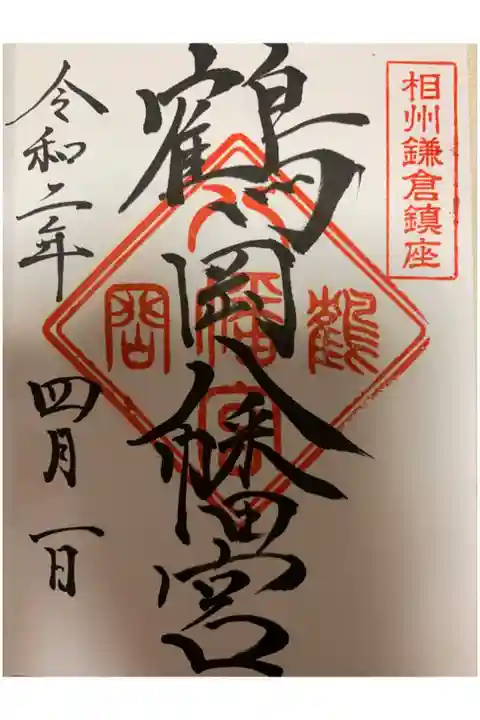 相州鎌倉鎮座
鶴岡八幡宮
鶴岡
八幡宮
令和二年 四月一日